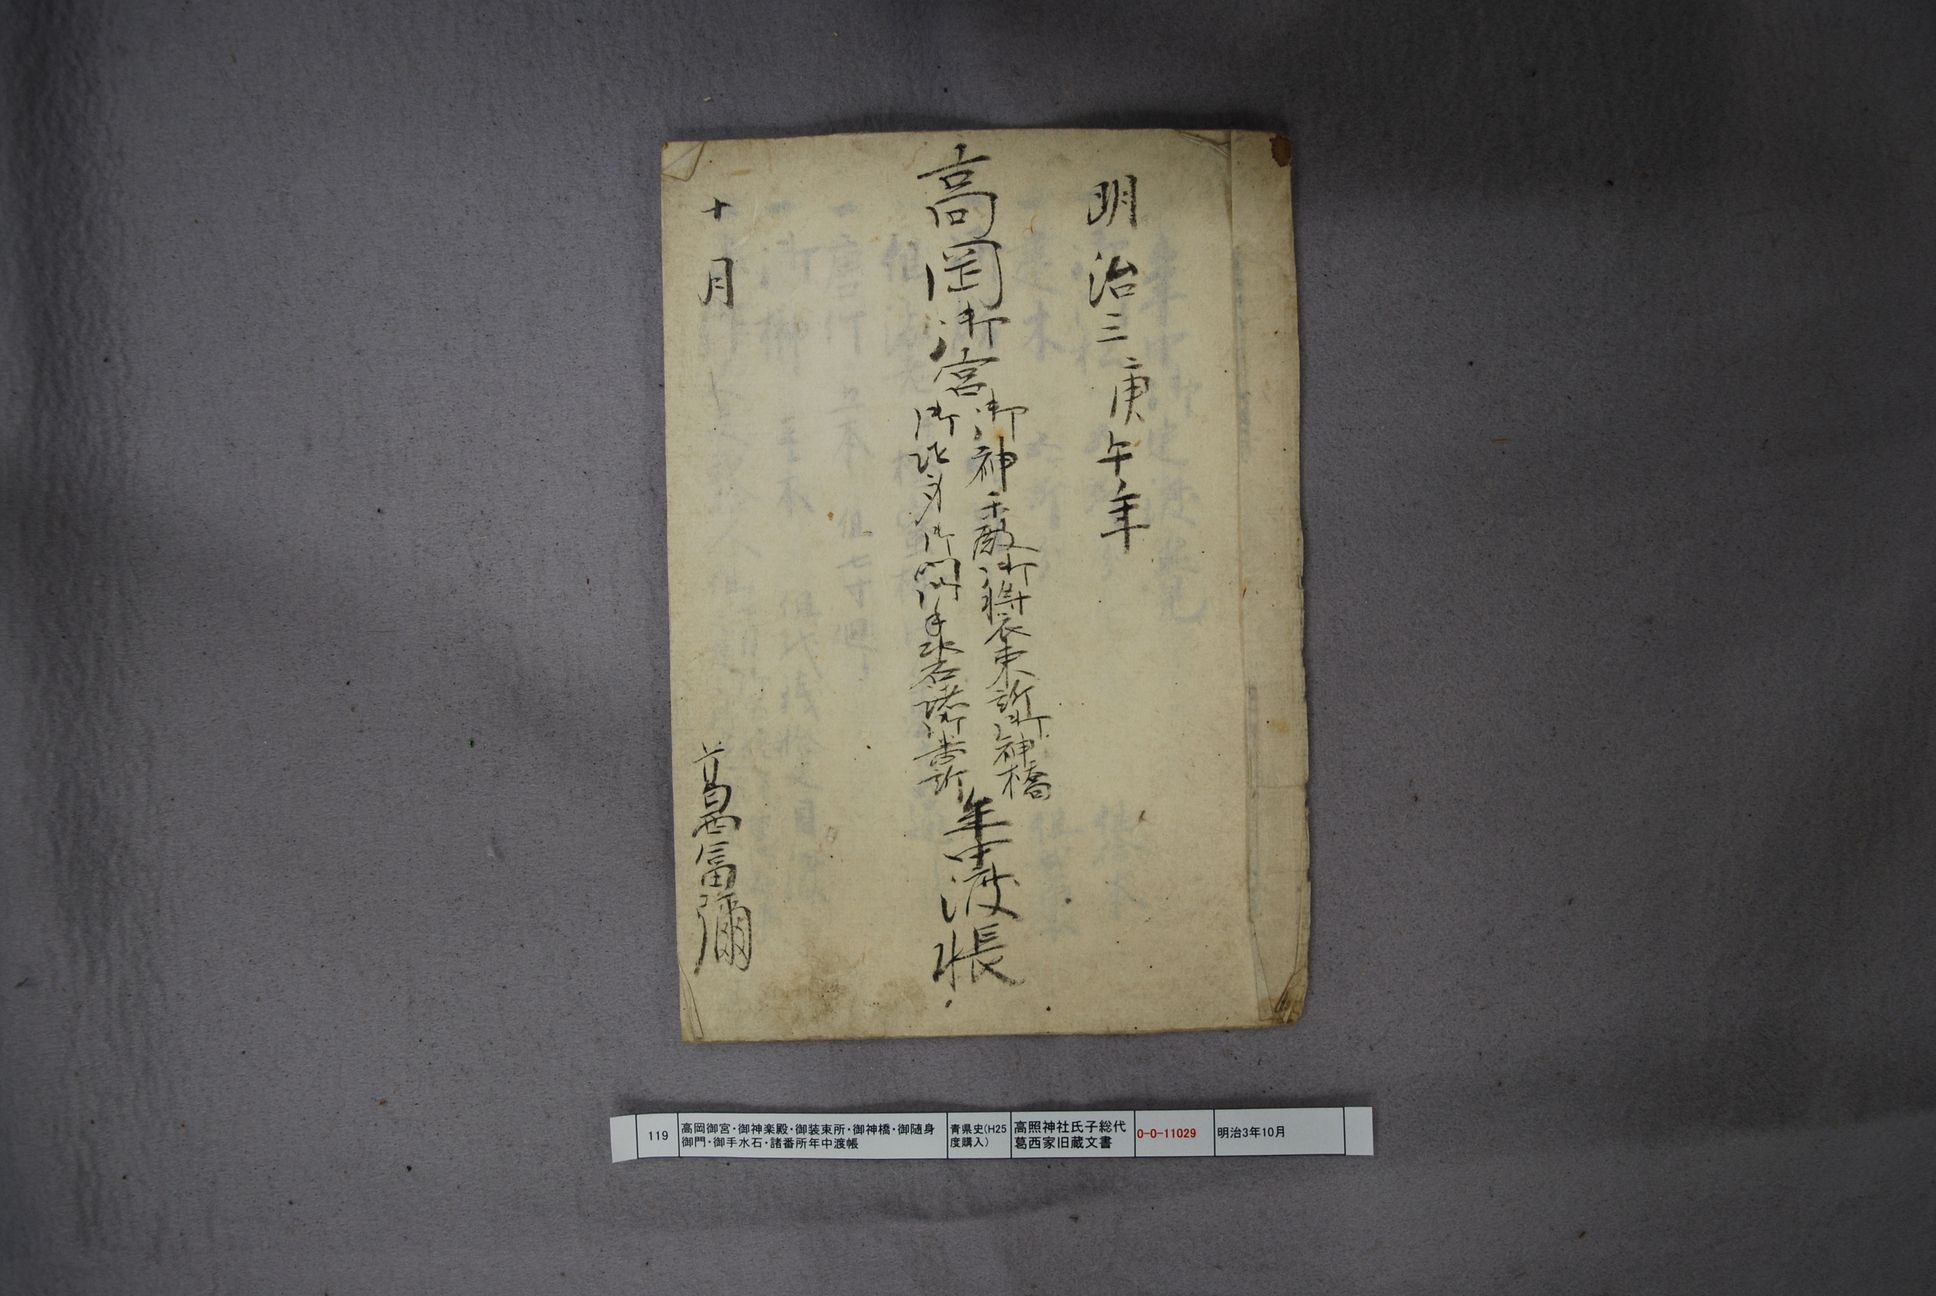 明治三庚午年
高岡御宮
御神楽殿御装束所御神橋
御随身御門御手水石諸御番所
年中渡帳
十月
葛西富彌
119
高岡御宮・御神楽殿・御装束所・御神橋・御随身
御門・御手水石・諸番所年中渡帳
青県史(H25
度購入)
高照神社氏子総代
葛西家旧蔵文書
O-O-11029
明治3年10月